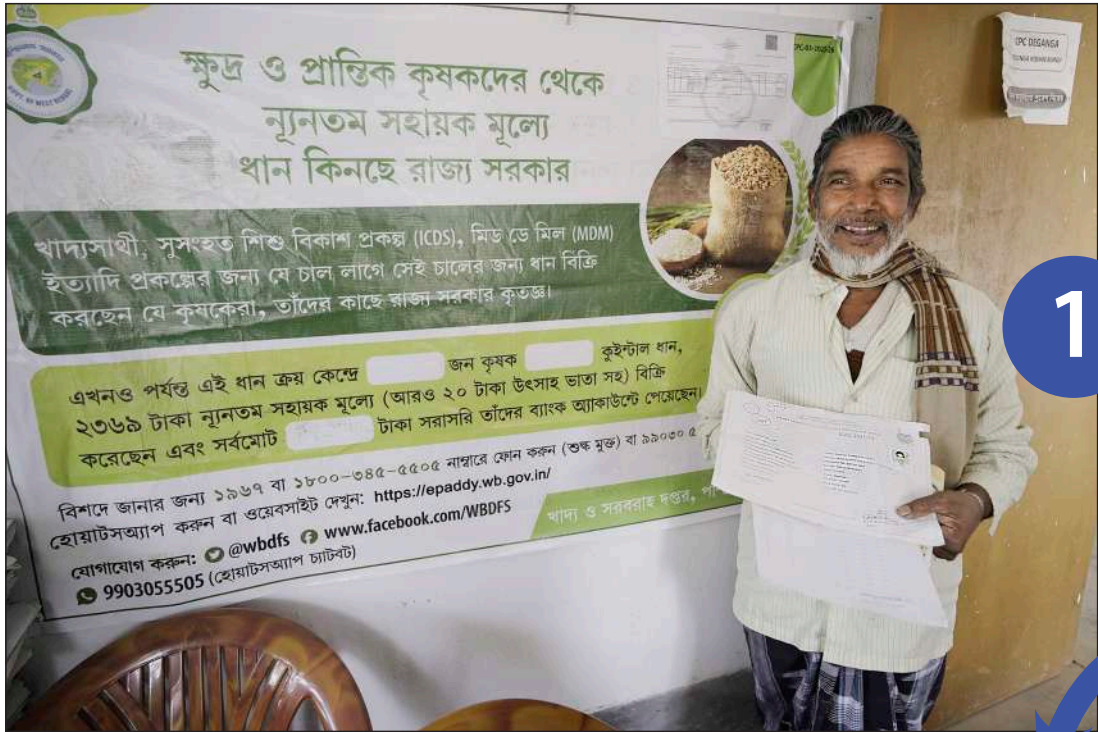 GOVT. OF WEST BENGAL
ক্ষুদ্র ও প্রান্তিক কৃষকদের থেকে
ন্যূনতম সহায়ক মূল্যে
ধান কিনছে রাজ্য সরকার
খাদ্যসাথী, সুসংহত শিশু বিকাশ প্রকল্প (ICDS), মিড ডে মিল (MDM)
ইত্যাদি প্রকল্পের জন্য যে চাল লাগে সেই চালের জন্য ধান বিক্রি
করছেন যে কৃষকেরা, তাঁদের কাছে রাজ্য সরকার কৃতজ্ঞ।
এখনও পর্যন্ত এই ধান ক্রয় কেন্দ্রে জন কৃষক কুইন্টাল ধান,
২৩৬৯ টাকা ন্যূনতম সহায়ক মূল্যে (আরও ২০ টাকা উৎসাহ ভাতা সহ) বিক্রি
করেছেন এবং সর্বমোট টাকা সরাসরি তাঁদের ব্যাংক অ্যাকাউন্টে পেয়েছেন।
বিশদে জানার জন্য ১৯৬৭ বা ১৮০০-৩৪৫-৫৫০৫ নাম্বারে ফোন করুন (শুল্ক মুক্ত) বা ৯৯০৩০ ৫
হোয়াটসঅ্যাপ করুন বা ওয়েবসাইট দেখুন: https://epaddy.wb.gov.in/
যোগাযোগ করুন: @wbdfs www.facebook.com/WBDFS
9903055505 (হোয়াটসঅ্যাপ চ্যাটবট)
খাদ্য ও সরবরাহ দপ্তর,
CPC DEGANGA
1